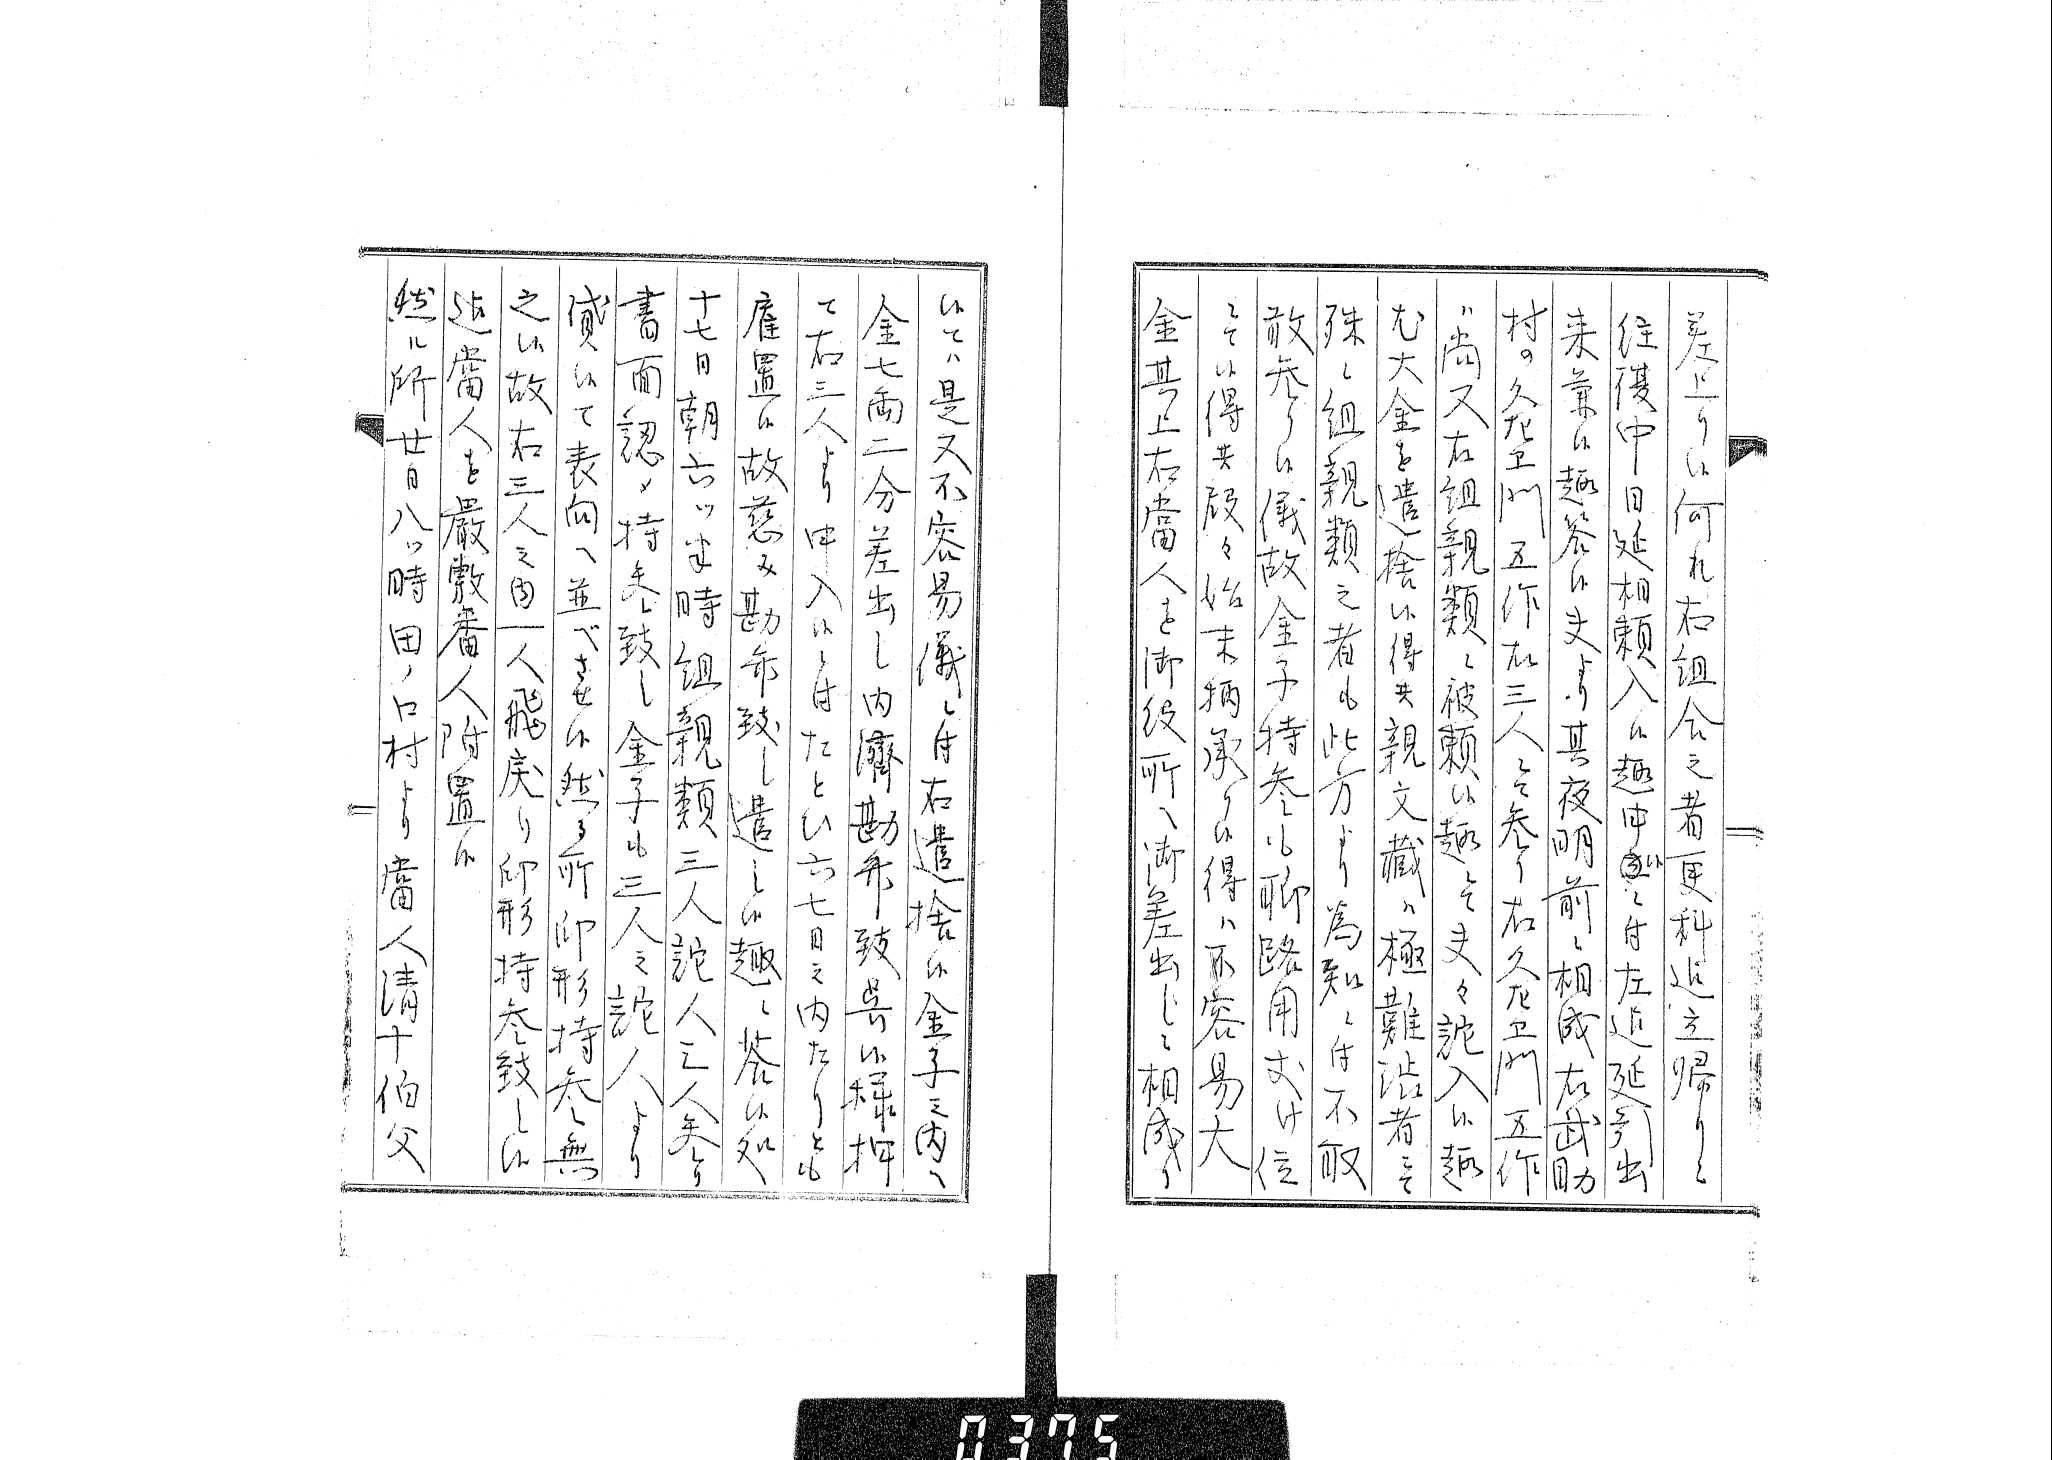 差上り候何れ右組合之者更科迄立帰りニ
往復中日延相頼入候趣申ニ付左迄延引出
来兼候趣答候夫より其夜明前ニ相成右武助
村の久左卫門五作右三人ニ而参り右久左卫門五作
ハ尚又右組親類ニ被頼候趣ニ而夫々詫入候趣
尤大金を遣捨候得共親文蔵ハ極難渋者ニ而
殊ニ組親類之者も此方より為知ニ付不取
敢参り候儀故金子持参も聊路用丈け位
ニ而候得共段々始末柄承り候得ハ不容易大
金其上右當人を御役所へ御差出しニ相成り
候てハ是又不容易儀ニ付右遣捨候金子之内へ
金七両二分差出し内濟勘弁致呉候様押
て右三人より申入候ニ付たとひ六七日之内たりとも
雇置候故慈み勘弁致し遣し候趣ニ答候処
十七日朝六ツ半時組親類三人詫人三人参り
書面認メ持参致し金子も三人之詫人より
貸候て表向へ並べさせ候然る所印形持参無
之候故右三人之内一人飛戻り印形持参致し候
迄當人を嚴敷番人附置候
然ル所廿日八ツ時田ノ口村より當人清十伯父
0375